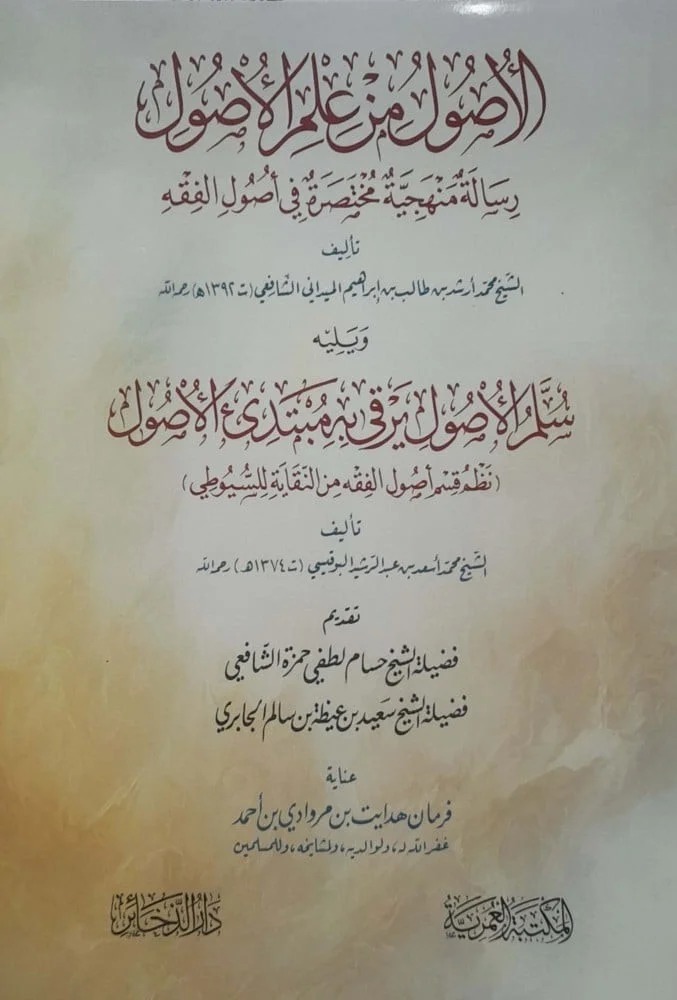 الأُصُولُ مِنْ عِلْمِ الأُصُولِ
رِسَالَةٌ مَنْهَجِيَّةٌ مُخْتَصَرَةٌ فِي أُصُولِ الفِقْهِ
تأليف
الشيخ محمد أرشد بن طالب بن إبراهيم الميداني الشافعي (ت ١٣٩٢ه) رحمه الله
وَيَلِيه
سُلَّمُ الأُصُولِ يَرْقَى بِهِ مُبْتَدِئُ الأُصُولِ
(نَظْمُ قِسْمِ أُصُولِ الفِقْهِ مِنَ النُّقَايَةِ لِلسُّيُوطِي)
تأليف
الشيخ محمد أسعد بن عبد الرشيد البوقيسي (ت ١٣٧٤هـ) رحمه الله
تقديم
فضيلة الشيخ حسام لطفي حمزة الشافعي
فضيلة الشيخ سعيد بن عيظة بن سالم الجابري
عناية
فرمان هدايت بن مروادي بن أحمد
غفر الله له، ولوالديه، ولمشايخه، وللمسلمين
المكتبة العُمَرِيَّة
دَارُ الذَّخَائِر